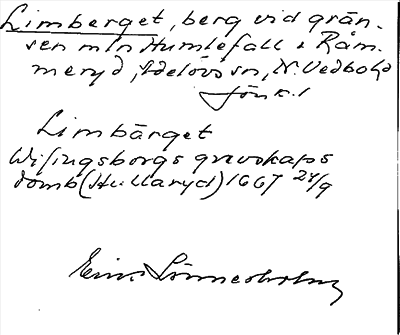 Limberget, berg vid grän-
sen mln Humlefall o Råm-
meryd, Adelövs sn, N. Vedbo hd
Jönk. l
Limbärget
Wisingsborgs grevskaps
domb (Hullaryd) 1667 24/9